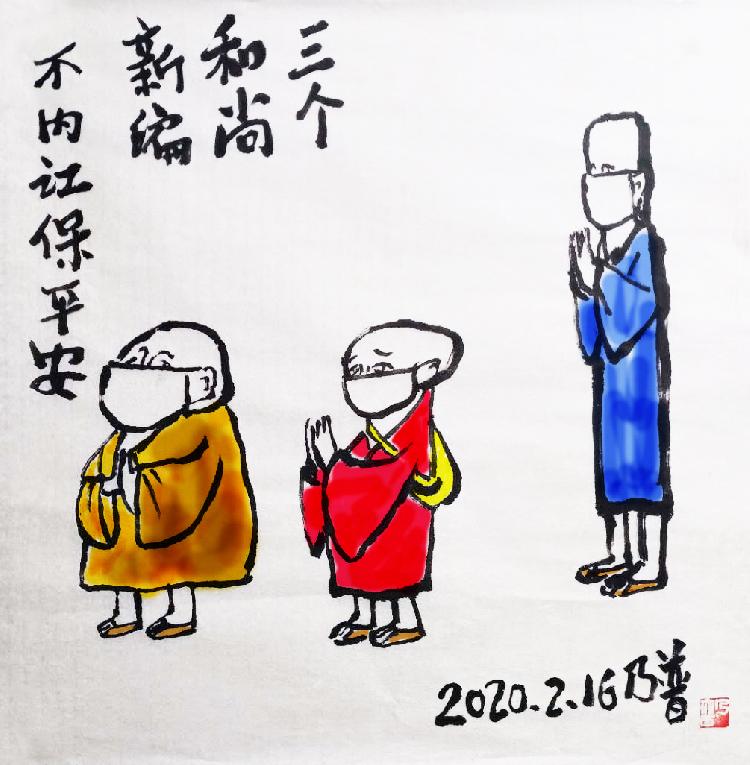 三个
和尚
新编
不内讧保平安
2020.2.16 乃普